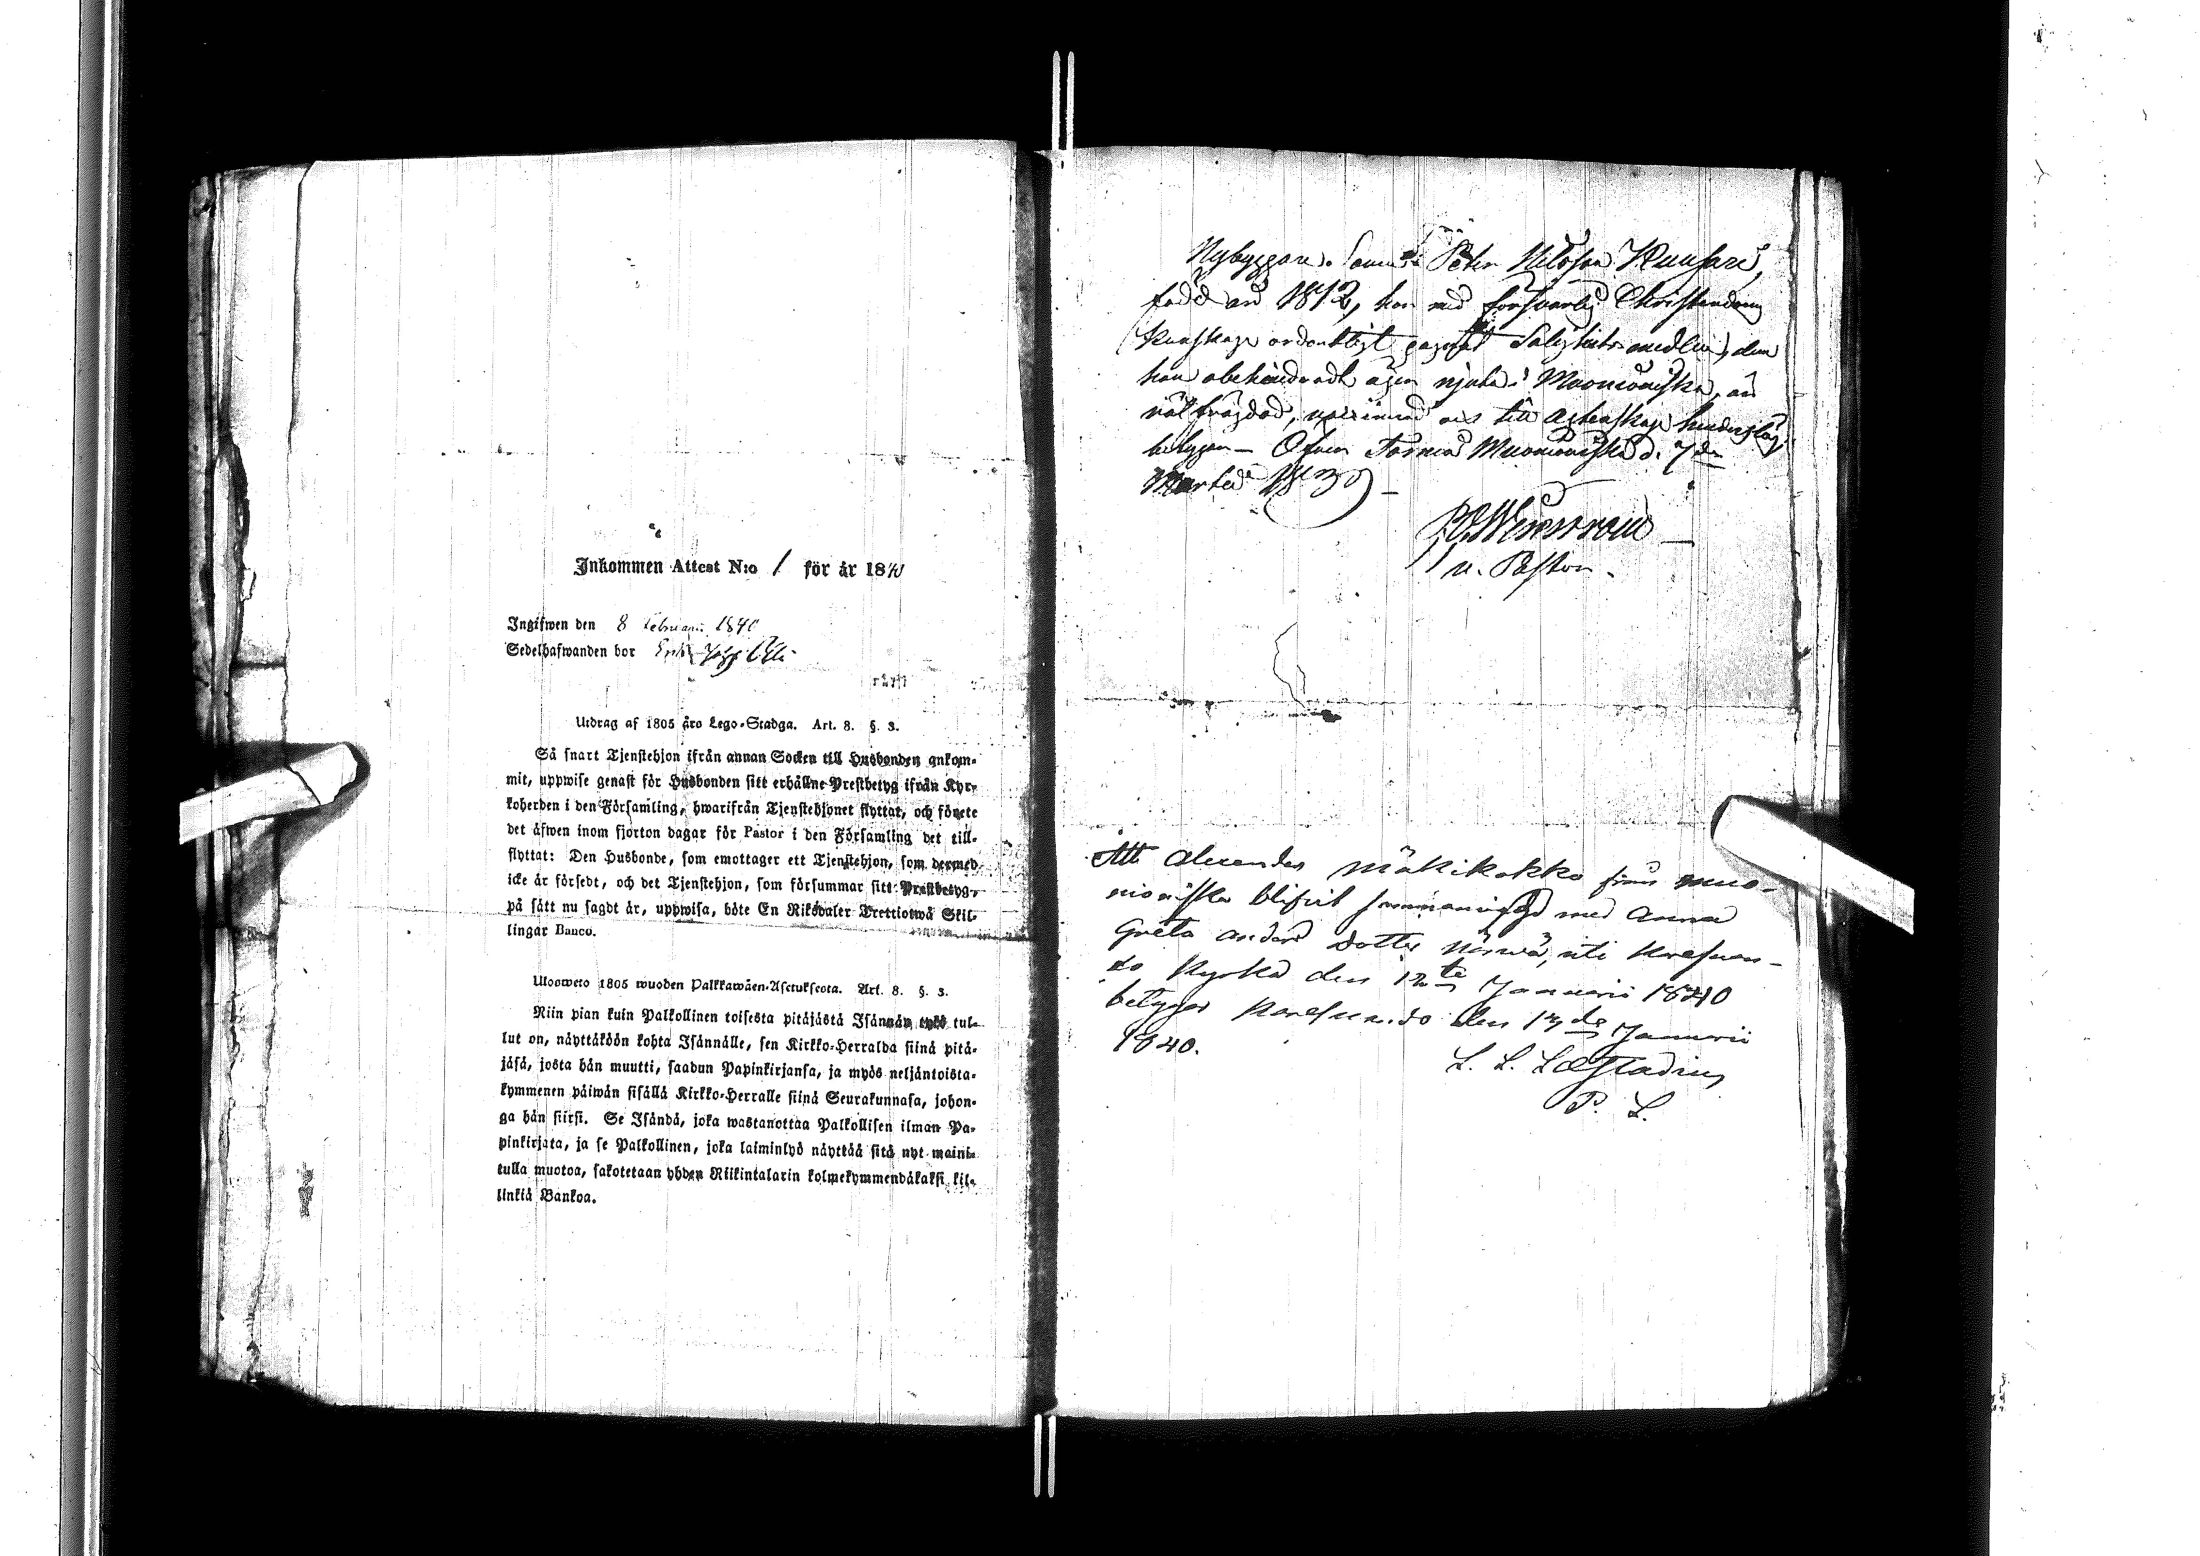 Inkommen Attest N:o 1 för år 1840
Ingifwen den 8 Februarii 1840
Sedelhafwanden bor
Utdrag af 1805 års Lego-Stadga. Art. 8. §. 3.
Så snart Tjenstehjon ifrån annan Socken till Husbonden ankom-
mit, uppwise genast för Husbonden sitt erhållne Prestbetyg ifrån Kyr-
koherden i den Församling, hwarifrån Tjenstehjonet flyttat, och förete
det äfwen inom fjorton dagar för Pastor i den Församling det till-
flyttat: Den Husbonde, som emottager ett Tjenstehjon, som dermed
icke är försedt, och det Tjenstehjon, som försummar sitt Prestbetyg,
på sätt nu sagdt är, uppwisa, böte En Riksdaler Trettiotwå Skil-
lingar Banco.
Ulosweto 1805 wuoden Palkkawäen-Asetuksesta. Art. 8. §. 3.
Niin pian kuin Palkollinen toisesta pitäjästä Isännän työö tul-
lut on, näyttäköön kohta Isännälle, sen Kirkko-Herralda siinä pitä-
jäsä, josta hän muutti, saadun Papinkirjansa, ja myös neljäntoista-
kymmenen päiwän sisällä Kirkko-Herralle siinä Seurakunnasa, johon-
ga hän siirsi. Se Isändä, joka wastanottaa Palkollisen ilman Pa-
pinkirjata, ja se Palkollinen, joka laiminlyö näyttää sitä nyt maini-
tulla muotoa, sakotetaan yhden Riikintalarin kolmekymmendäkaksi kil-
linkiä Bankoa.
Nybyggare Sonen Peter Nilsson Kunsari,
född år 1812, har med försvarlig Christendoms
Kunskap ordentligt begått Salighetsmedlen, dem
han obehindradt äger njuta i Muonioniska, är
välfrägdad, till Äktenskap hinderslös
betygar – Öfver Torneå Muonioniska d. 7de
Martii 1839 –
v. Pastor.
Att Alexander Mäkikokko från Muo-
nioniska blifvit sammanvigd med Anna
Greta Anders dotter Närwä, uti Karesuan-
do Kyrka den 12te Januarii 1840
betygar Karesuando den 13de Januarii
1840.
L. L. Læstadius
P. L.